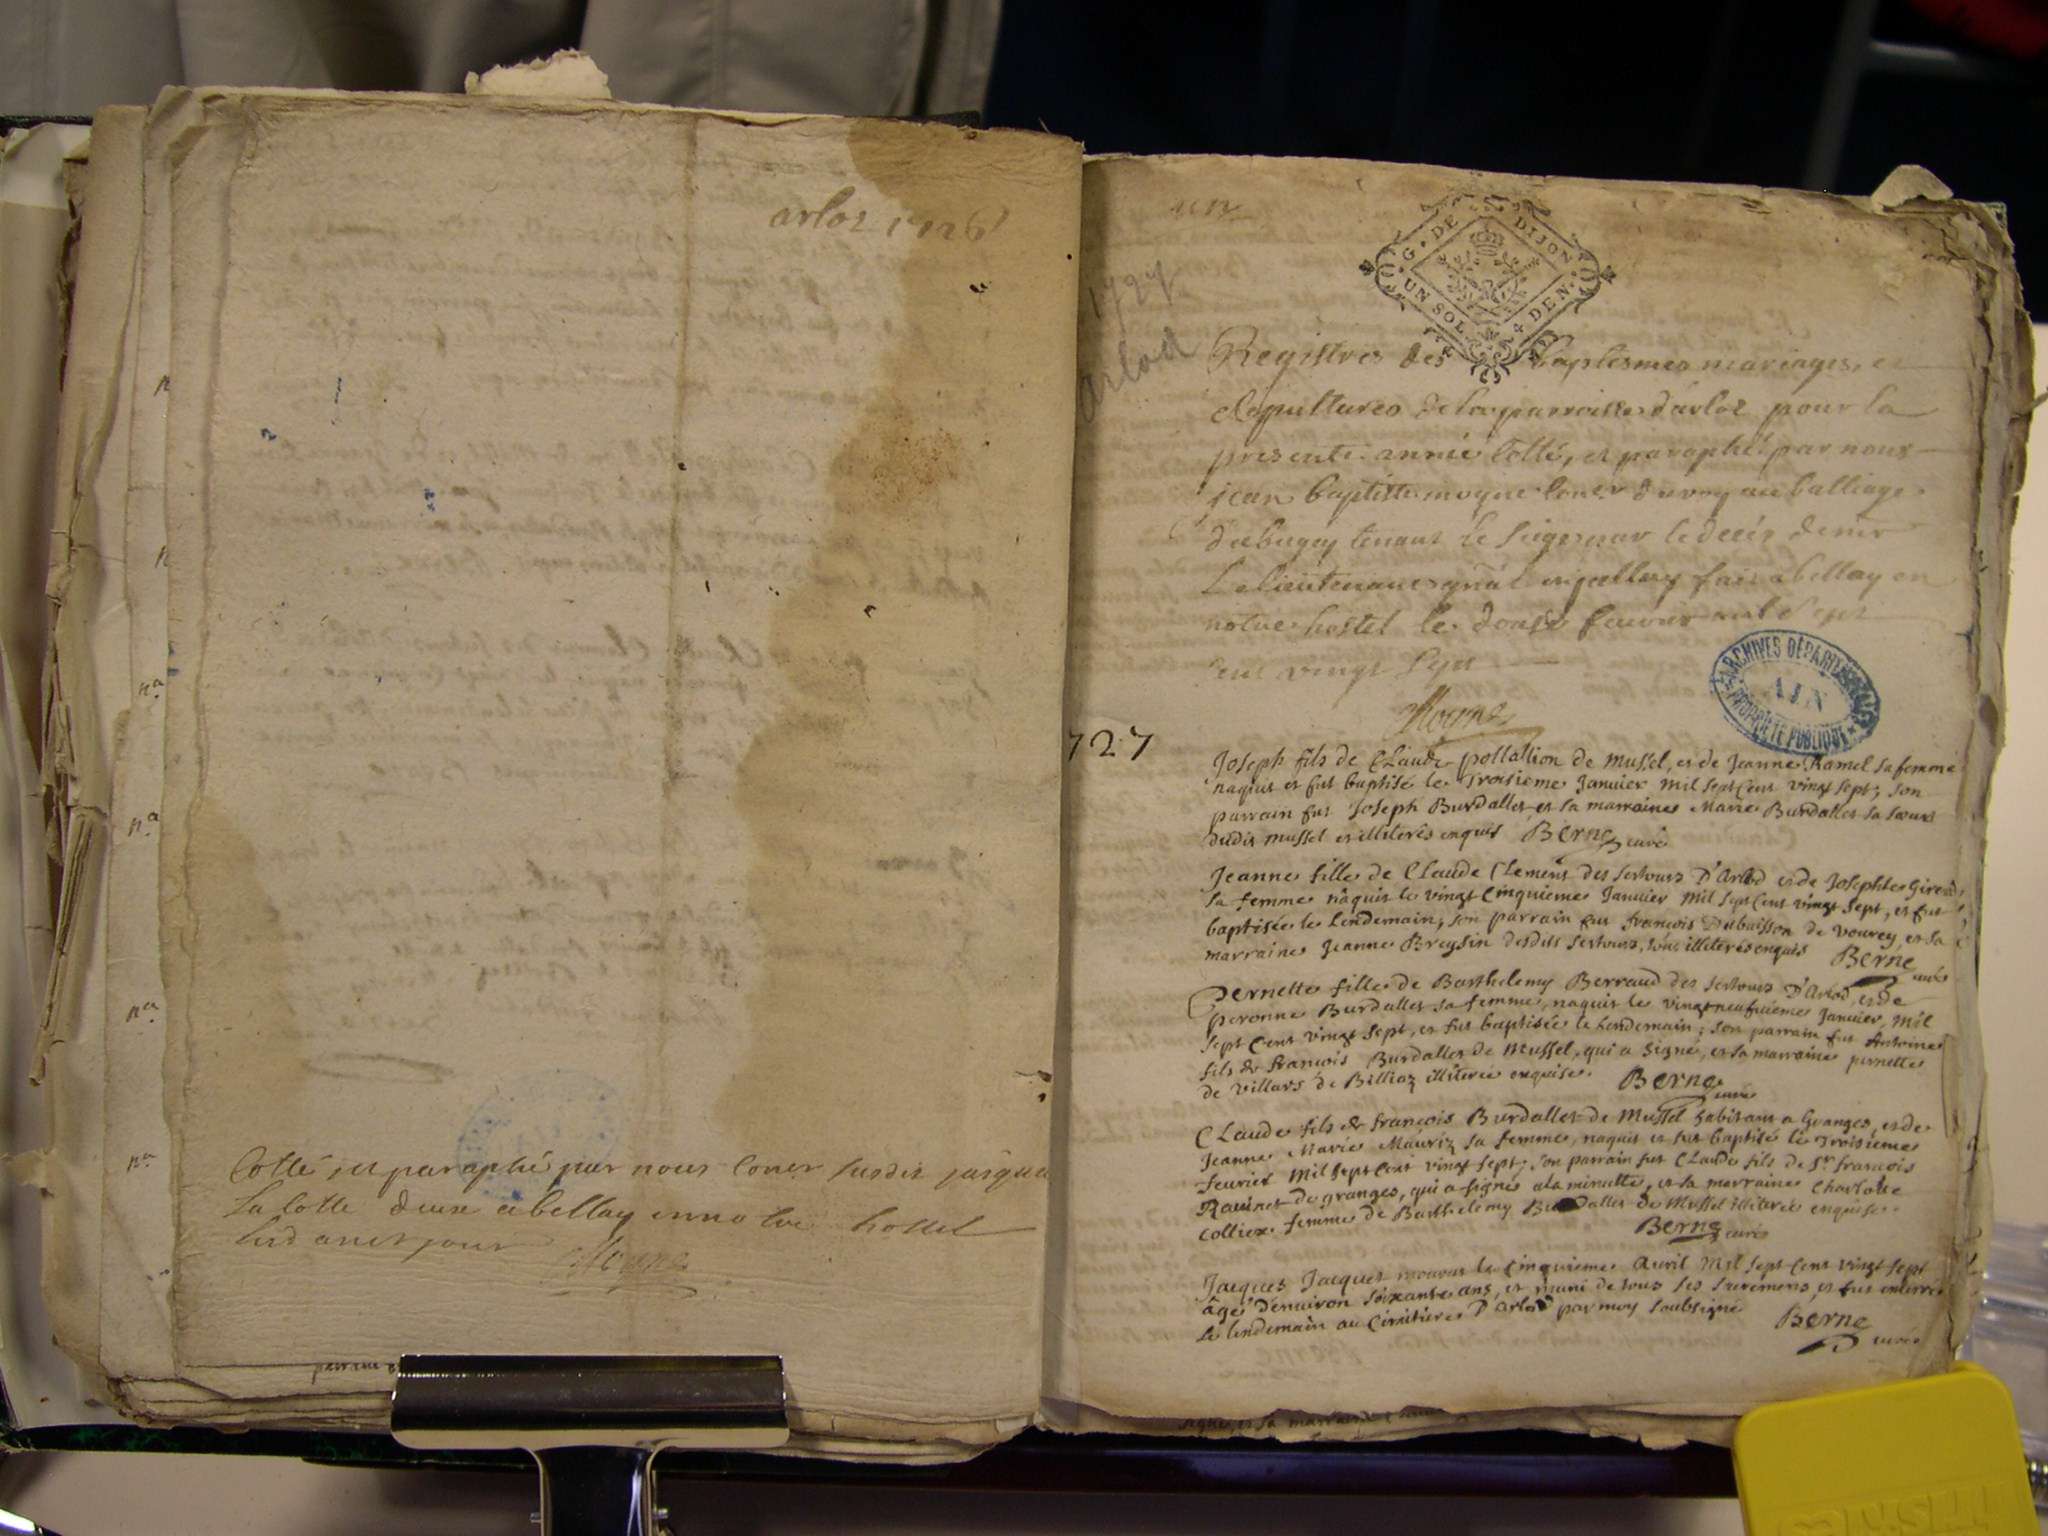 arlos 1726
Cotté et paraphé par nous Coner susdit jusqua
la cotte deux a bellay en notre hostel
lesd an et jour Moyne
un
G. DE DIJON
UN SOL 4 DEN.
1727
Arlod
Registres des baptesmes mariages, et
sepultures de la parroisse d'arlos pour la
presente année Cotté, et paraphé par nous
jean baptiste moyne Coner du roy au balliage
du bugey tenant le siege par le decés de mr
Le lieutenant gnal fait a bellay en
notre hostel le douse feuvrier mil sept
cent vingt sept
Moyne
ARCHIVES DÉPARTEMENTALES
AIN
PROPRIÉTÉ PUBLIQUE
727
Joseph fils de Claude pollallion de Mussel, et de Jeanne Ramel sa femme
naquit et fut baptisé le troisieme Janvier mil sept Cent vingt sept; son
parrain fut Joseph Burdallet, et sa marraine Marie Burdallet sa soeur
dudit mussel et illiterés enquis Berne curé
Jeanne fille de Claude Clement des Sertoux D'Arlod et de Josephte Girend
sa femme naquit le vingt Cinquieme Janvier mil sept Cent vingt sept, et fut
baptisée le Lendemain; son parrain fut françois Dubuisson de vouvrey, et sa
marraine Jeanne Breysin desdits Sertoux, tous illiterés enquis Berne
curé
Pernette fille de Barthelemy Berraud des Sertoux D'Arlod, et de
peronne Burdallet sa femme, naquit le vingt neufvieme Janvier, mil
sept Cent vingt sept, et fut baptisée le Lendemain; son parrain fut Antoine
fils de françois Burdallet de Mussel, qui a signé, et sa marraine pernette
de villars de Billiaz illiterée enquise. Berne
curé
Claude fils de françois Burdallet de Mussel habitant a Granges, et de
Jeanne Marie Mauriz sa femme, naquit et fut baptisé le troisieme
fevrier mil sept Cent vingt sept; son parrain fut Claude fils de Sr francois
Ravinet de granges, qui a signé a la minutte, et sa marraine Charlotte
Colliex femme de Barthelemy Burdallet de Mussel illiterée enquise.
Berne curé
Jacques Jacquet mourut le Cinquieme Avril mil sept Cent vingt sept
âgé d'environ soixante ans, et muni de tous ses sacremens, et fut enterré
le lendemain au Cimitiere D'arlod par moy soubsigné Berne
curé
signé, et sa marraine